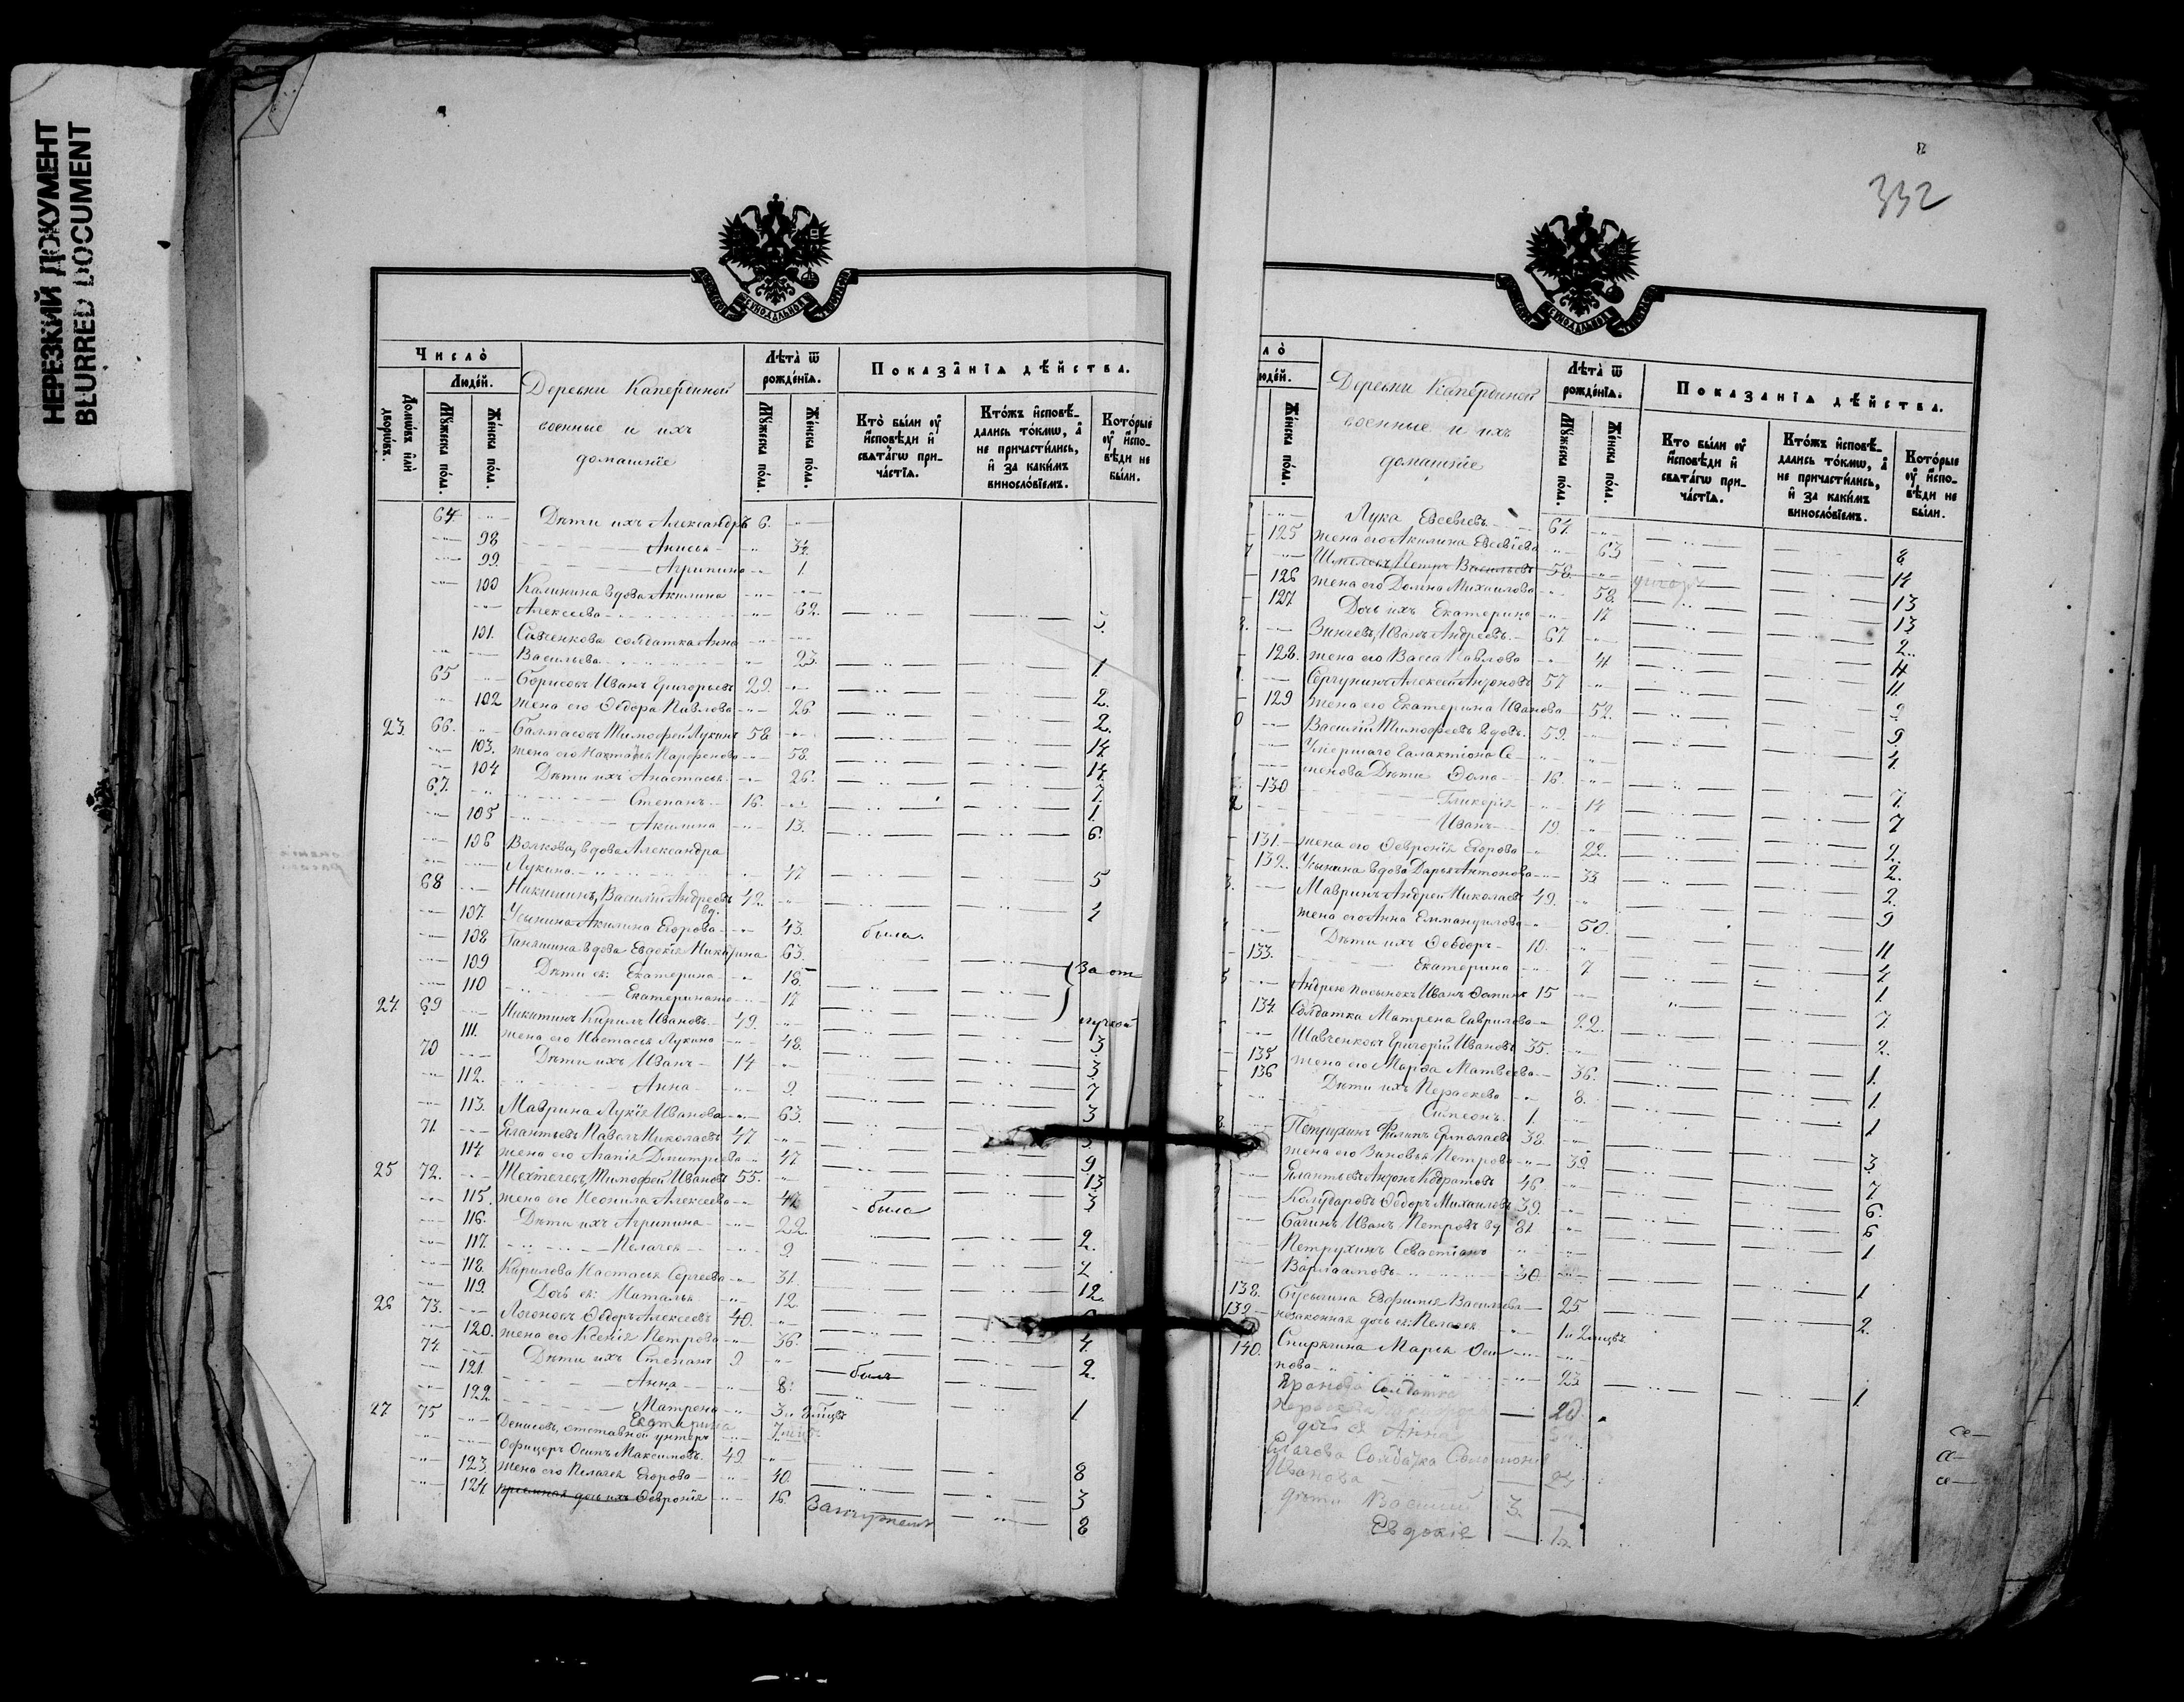 НЕРЕЗКИЙ ДОКУМЕНТ
BLURRED DOCUMENT
Число̀
Людей.
Домѡвъ или̂ дворѡвъ.
Мꙋжеска пола.
Женска пола.
Деревни Капердиной
военные и ихъ
домашніе
Лѣта̀ ѿ рожденїѧ.
Мꙋжеска пола.
Женска пола.
Показанїѧ дѣйства.
Кто̀ были оу҆ исповѣди и свѧтагѡ причастїѧ.
Ктожъ исповѣдались токмѡ, а не причастились, и за какимъ винословїемъ.
Которые оу҆ исповѣди не были.
64. Дѣти ихъ Александръ 6.
98 Анисья 3½
99. Агрипина 1.
100 Калинина вдова Акилина
Алексеева 62. 3.
101. Савченкова солдатка Анна
Васильева 23. 1
65 Борисовъ Иванъ Григорьевъ 29. 2.
102 жена его Ѳедора Павлова 26. 2.
23. 66. Балмасовъ Тимофей Лукинъ 58 14
103. жена его Настасья Парфенова 58. 14
104 Дѣти ихъ Анастасья 26. 7.
67. Степанъ 16. 1.
105 Акилина 13. 6.
106 Волкова, вдова Александра
Лукина 47 5
68 Никишинъ, Василій Андреевъ вд. 42. 4
107. Усынина Акилина Егорова 43. была.
108 Ганяшина вдова Евдокія Никитина 63.
109 Дѣти ея: Екатерина 18. За от
110 Екатерина же 17
24. 69 Никитинъ Кирилъ Ивановъ 49. лучкой
111. жена его Настасья Лукина 48. 3
70 Дѣти ихъ Иванъ 14 3
112. Анна 9. 7
113. Маврина Лукія Иванова 63. 3
71. Ялантьевъ Павелъ Николаевъ 47
114 жена его Агапія Дмитріева 47 9
25 72. Мехтелевъ, Тимофей Ивановъ 55. 13
115. жена его Неонила Алексеева 42 была 3
116. Дѣти ихъ Агрипина 22. 2.
117. Пелагея 9. 2
118. Кирилова Настасья Сергеева 31. 12.
119. Дочь ея: Наталья 12.
26 73. Логоновъ Ѳедоръ Алексеевъ 40. 4.
120. жена его Ксенія Петрова 36. 2.
74. Дѣти ихъ Степанъ 9. былъ
121. Анна 8.
122. Матрена 3 и 3 мцвъ 1
Екатерина 7 мцвъ
27 75 Денисовъ, отставной унтеръ
Оофицеръ Осипъ Максимовъ 49. 8
123. жена его Пелагея Егорова 40. 3
124. приемная дочь ихъ Ѳевронія 16. Замужемъ 8
332
ло̀
юдей.
Женска пола.
Деревни Капердиной
военные и ихъ
домашніе
Лѣта̀ ѿ рожденїѧ.
Мꙋжеска пола.
Женска пола.
Показанїѧ дѣйства.
Кто были оу҆ исповѣди и свѧтагѡ причастїѧ.
Ктожъ исповѣдались токмѡ, а не причастились, и за какимъ винословїемъ.
Которые оу҆ исповѣди не были.
Лука Евсевьевъ 64. 8
125 жена его Акилина Евсевіева 63 14
Шмелевъ, Петръ Васильевъ 58. умеръ 13
126 жена его Домна Михайлова 58. 13
127 Дочь ихъ Екатерина 17 2.
Зинчевъ, Иванъ Андреевъ 67. 11
128. жена его Васса Павлова 11.
Сергунинъ Алексей Антоновъ 57
129 жена его Екатерина Иванова 52. 9.
Василій Тимофеевъ вдовъ. 59. 4.
Умершаго Галактіона Се-
менова Дѣти Ѳома 16. 7.
130 Гликерія 14 7
Иванъ 19. 2.
131. жена его Ѳевронія Егорова 22. 2.
132. Усынина вдова Дарья Антонова 33 2.
Мавринъ Андрей Николаевъ 49. 9
жена его Анна Еммануилова 50. 11
Дѣти ихъ Ѳеодоръ 10. 4
133. Екатерина 7 1.
Андрею пасынокъ Иванъ Ѳоминъ 15 7.
134. Солдатка Матрена Гаврилова 22. 2.
Шавченковъ Григорій Ивановъ 35. 1.
135 жена его Марѳа Матвеева 36. 1.
136 Дѣти ихъ Параскева 8. 1
Симеонъ 1.
Петрухинъ Филипъ Ермолаевъ 38. 3.
жена его Зиновья Петрова 39 7
Ялантьевъ Антонъ Кодратовъ 46 6.
Калударовъ Ѳедоръ Михаиловъ 39. 6
Багинъ Иванъ Петровъ вд 81 1
Петрухинъ Севастіанъ
Варлаамовъ 30. 1
138. Бусыгина Евфимія Васильева 25 2.
139 незаконная дочь ея: Пелагея 1 и 2 мцвъ
140. Спирягина Марья Оси-
пова 23 1.
Солдатка
20
дочь ея Анна
Солдатка Соломонія
Иванова 23
дѣти Василий 3.
Евдокіе 1.